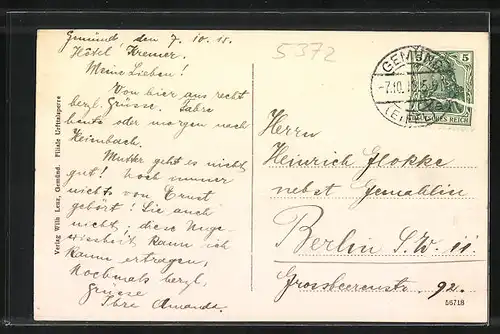 Gemünd, den 7. 10. 15.
Hôtel Kremer.
Meine Lieben!
Von hier aus recht
herzl. Grüsse. Fahre
heute oder morgen nach
Heimbach.
Mutter geht es nicht
gut! Noch immer
nichts von Ernst
gehört! Sie auch
nicht; diese Unge-
wissheit kann ich
kaum ertragen,
Nochmals herzl.
Grüsse
Ihre Amanda.
Verlag Wilh. Lenz, Gemünd. Filiale Urfttalsperre
5372
GEMÜND
-7.10.15.
(EIFEL)
5
DEUTSCHES REICH
Herrn
Heinrich Flokke
nebst Gemahlin
Berlin S.W. 11.
Grossbeerenstr. 92.
56718